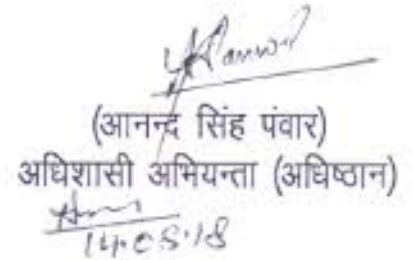 (आनन्द सिंह पंवार)
अधिशासी अभियन्ता (अधिष्ठान)
14.05.18